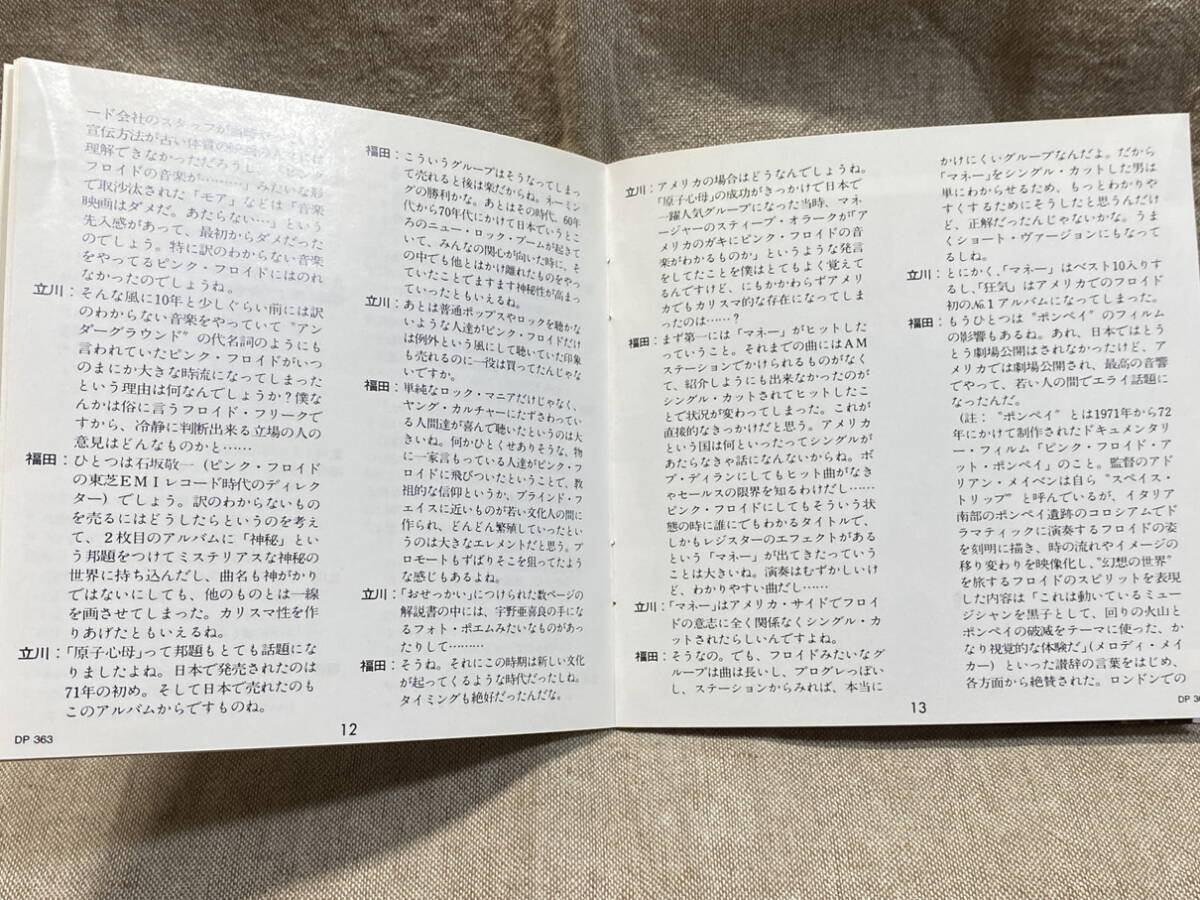 ード会社のスタッフが当時やっていた
宣伝方法が古い体質の映画の人々には
理解できなかっただろうし、「ピンク・
フロイドの音楽が………」みたいな形
で取沙汰された「モア」などは「音楽
映画はダメだ。あたらない…」という
先入感があって、最初からダメだった
のでしょう。特に訳のわからない音楽
をやってるピンク・フロイドにはのれ
なかったのでしょうね。
立川：そんな風に10年と少しぐらい前には訳
のわからない音楽をやっていて〝アン
ダーグラウンド〟の代名詞のようにも
言われていたピンク・フロイドがいつ
のまにか大きな時流になってしまった
という理由は何なんでしょうか？僕な
んかは俗に言うフロイド・フリークで
すから、冷静に判断出来る立場の人の
意見はどんなものかと……
福田：ひとつは石坂敬一（ピンク・フロイド
の東芝ＥＭＩレコード時代のディレク
ター）でしょう。訳のわからないもの
を売るにはどうしたらというのを考え
て、２枚目のアルバムに「神秘」とい
う邦題をつけてミステリアスな神秘の
世界に持ち込んだし、曲名も神がかり
ではないにしても、他のものとは一線
を画させてしまった。カリスマ性を作
りあげたともいえるね。
立川：「原子心母」って邦題もとても話題にな
りましたよね。日本で発売されたのは
71年の初め。そして日本で売れたのも
このアルバムからですものね。
福田：こういうグループはそうなってしまっ
て売れると後は楽だからね。ネーミン
グの勝利かな。あとはその時代、60年
代から70年代にかけて日本でいうとこ
ろのニュー・ロック・ブームが起きて
いて、みんなの関心が向いた時に、そ
の中でも他とはかけ離れたものをやっ
ていたことでますます神秘性が高まっ
ていったともいえるね。
立川：あとは普通ポップスやロックを聴かな
いような人達がピンク・フロイドだけ
は例外という風にして聴いていた印象
も売れるのに一役は買ってたんじゃな
いですか。
福田：単純なロック・マニアだけじゃなく、
ヤング・カルチャーにたずさわってい
る人間達が喜んで聴いたというのは大
きいね。何かひとくせありそうな、物
に一家言もっている人達がピンク・フ
ロイドに飛びついたということで、教
祖的な信仰というか、ブラインド・フ
ェイスに近いものが若い文化人の間に
作られ、どんどん繁殖していったとい
うのは大きなエレメントだと思う。プ
ロモートもずばりそこを狙ってたよう
な感じもあるよね。
立川：「おせっかい」につけられた数ページの
解説書の中には、宇野亜喜良の手にな
るフォト・ポエムみたいなものがあっ
たりして………
福田：そうね。それにこの時期は新しい文化
が起ってくるような時代だったしね。
タイミングも絶好だったんだな。
DP 363
12
立川：アメリカの場合はどうなんでしょうね。
「原子心母」の成功がきっかけで日本で
一躍人気グループになった当時、マネ
ージャーのスティーブ・オラークが「ア
メリカのガキにピンク・フロイドの音
楽がわかるものか」というような発言
をしてたことを僕はとてもよく覚えて
るんですけど、にもかかわらずアメリ
カでもカリスマ的な存在になってしま
ったのは……？
福田：まず第一には「マネー」がヒットした
っていうこと。それまでの曲にはＡＭ
ステーションでかけられるものがなく
て、紹介しようにも出来なかったのが
シングル・カットされてヒットしたこ
とで状況が変わってしまった。これが
直接的なきっかけだと思う。アメリカ
という国は何といったってシングルが
あたらなきゃ話になんないからね。ボ
ブ・ディランにしてもヒット曲がなき
ゃセールスの限界を知るわけだし……
ピンク・フロイドにしてもそういう状
態の時に誰にでもわかるタイトルで、
しかもレジスターのエフェクトがある
という「マネー」が出てきたっていう
ことは大きいね。演奏はむずかしいけ
ど、わかりやすい曲だし……
立川：「マネー」はアメリカ・サイドでフロイ
ドの意志に全く関係なくシングル・カ
ットされたらしいんですよね。
福田：そうなの。でも、フロイドみたいなグ
ループは曲は長いし、プログレっぽい
し、ステーションからみれば、本当に
かけにくいグループなんだよ。だから
「マネー」をシングル・カットした男は
単にわからせるため、もっとわかりや
すくするためにそうしたと思うんだけ
ど、正解だったんじゃないかな。うま
くショート・ヴァージョンにもなって
るしね。
立川：とにかく、「マネー」はベスト10入りす
るし、「狂気」はアメリカでのフロイド
初の№１アルバムになってしまった。
福田：もうひとつは〝ポンペイ〟のフィルム
の影響もあるね。あれ、日本ではとう
とう劇場公開はされなかったけど、ア
メリカでは劇場公開され、最高の音響
でやって、若い人の間でエライ話題に
なったんだ。
（註：〝ポンペイ〟とは1971年から72
年にかけて制作されたドキュメンタリ
ー・フィルム「ピンク・フロイド・ア
ット・ポンペイ」のこと。監督のアド
リアン・メイベンは自ら〝スペイス・
トリップ〟と呼んでいるが、イタリア
南部のポンペイ遺跡のコロシアムでド
ラマティックに演奏するフロイドの姿
を刻明に描き、時の流れやイメージの
移り変わりを映像化し、〝幻想の世界〟
を旅するフロイドのスピリットを表現
した内容は「これは動いているミュー
ジシャンを黒子として、回りの火山と
ポンペイの破滅をテーマに使った、か
なり視覚的な体験だ」（メロディ・メイ
カー）といった讃辞の言葉をはじめ、
各方面から絶賛された。ロンドンでの
13